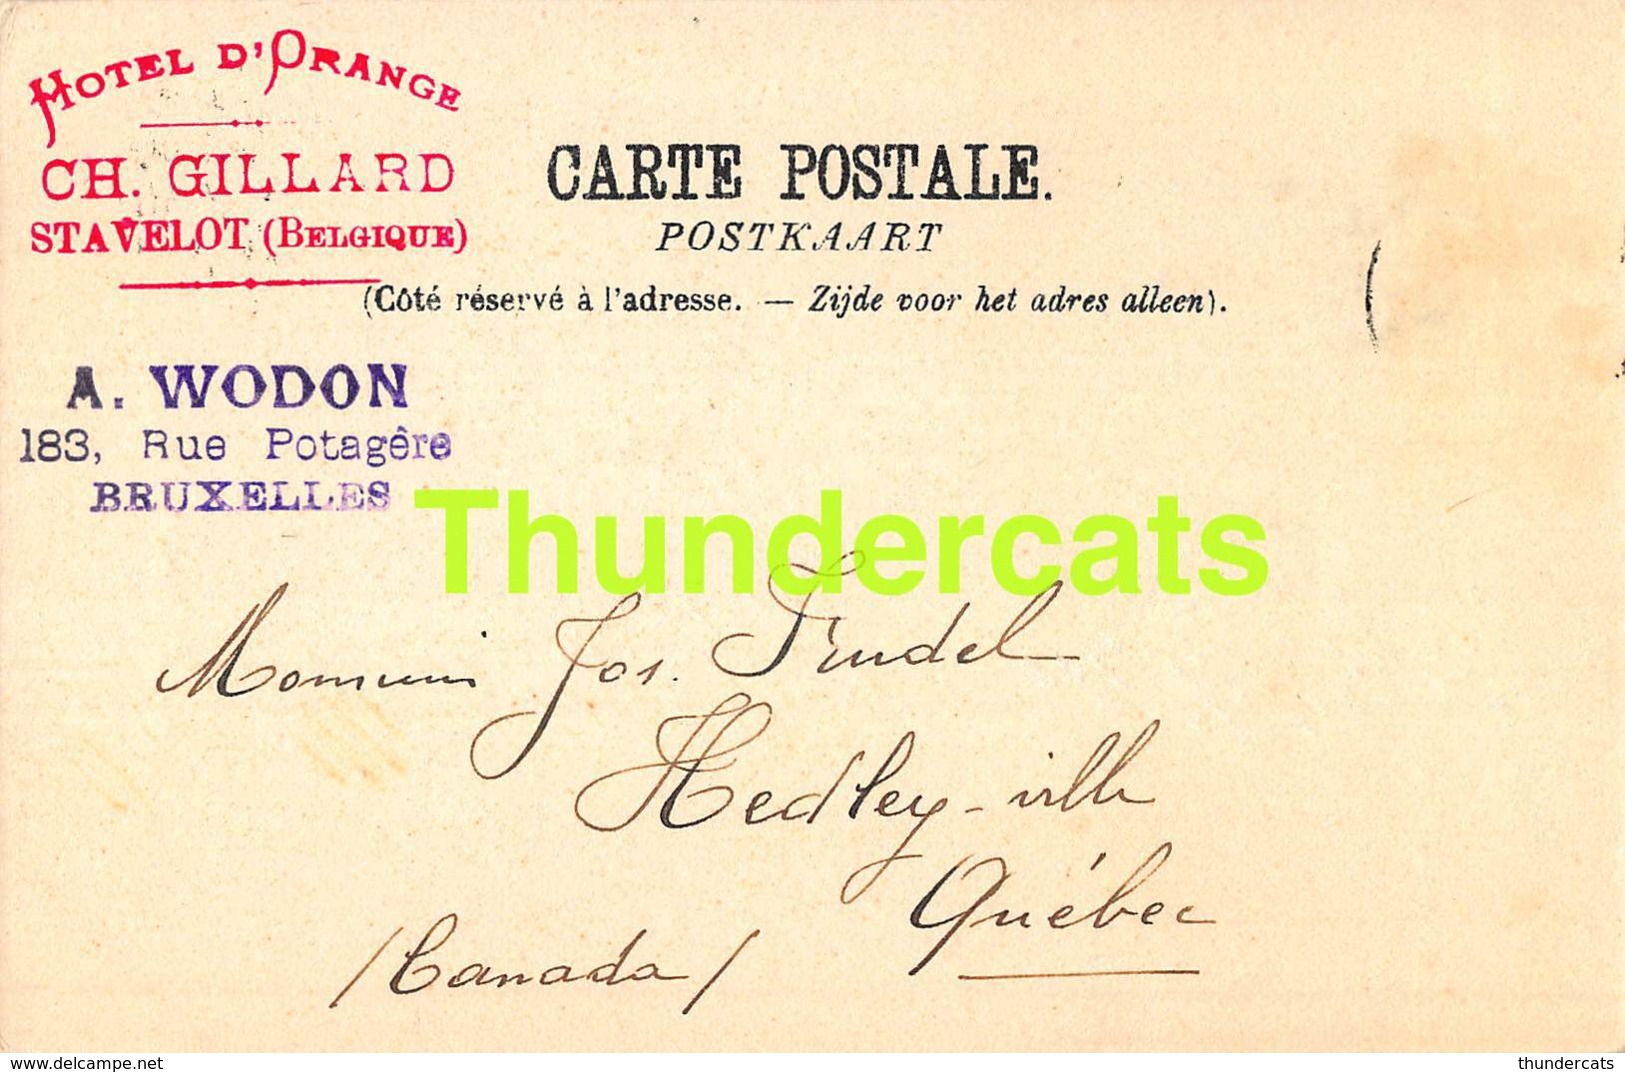 HOTEL D'ORANGE
CH. GILLARD
STAVELOT (BELGIQUE)
CARTE POSTALE.
POSTKAART
(Côté réservé à l'adresse. — Zijde voor het adres alleen).
A. WODON
183, Rue Potagêre
BRUXELLES
Thundercats
Monsieur Jos. Trudel
Hedley-ville
Québec
/Canada/
delcampe.net
thundercats